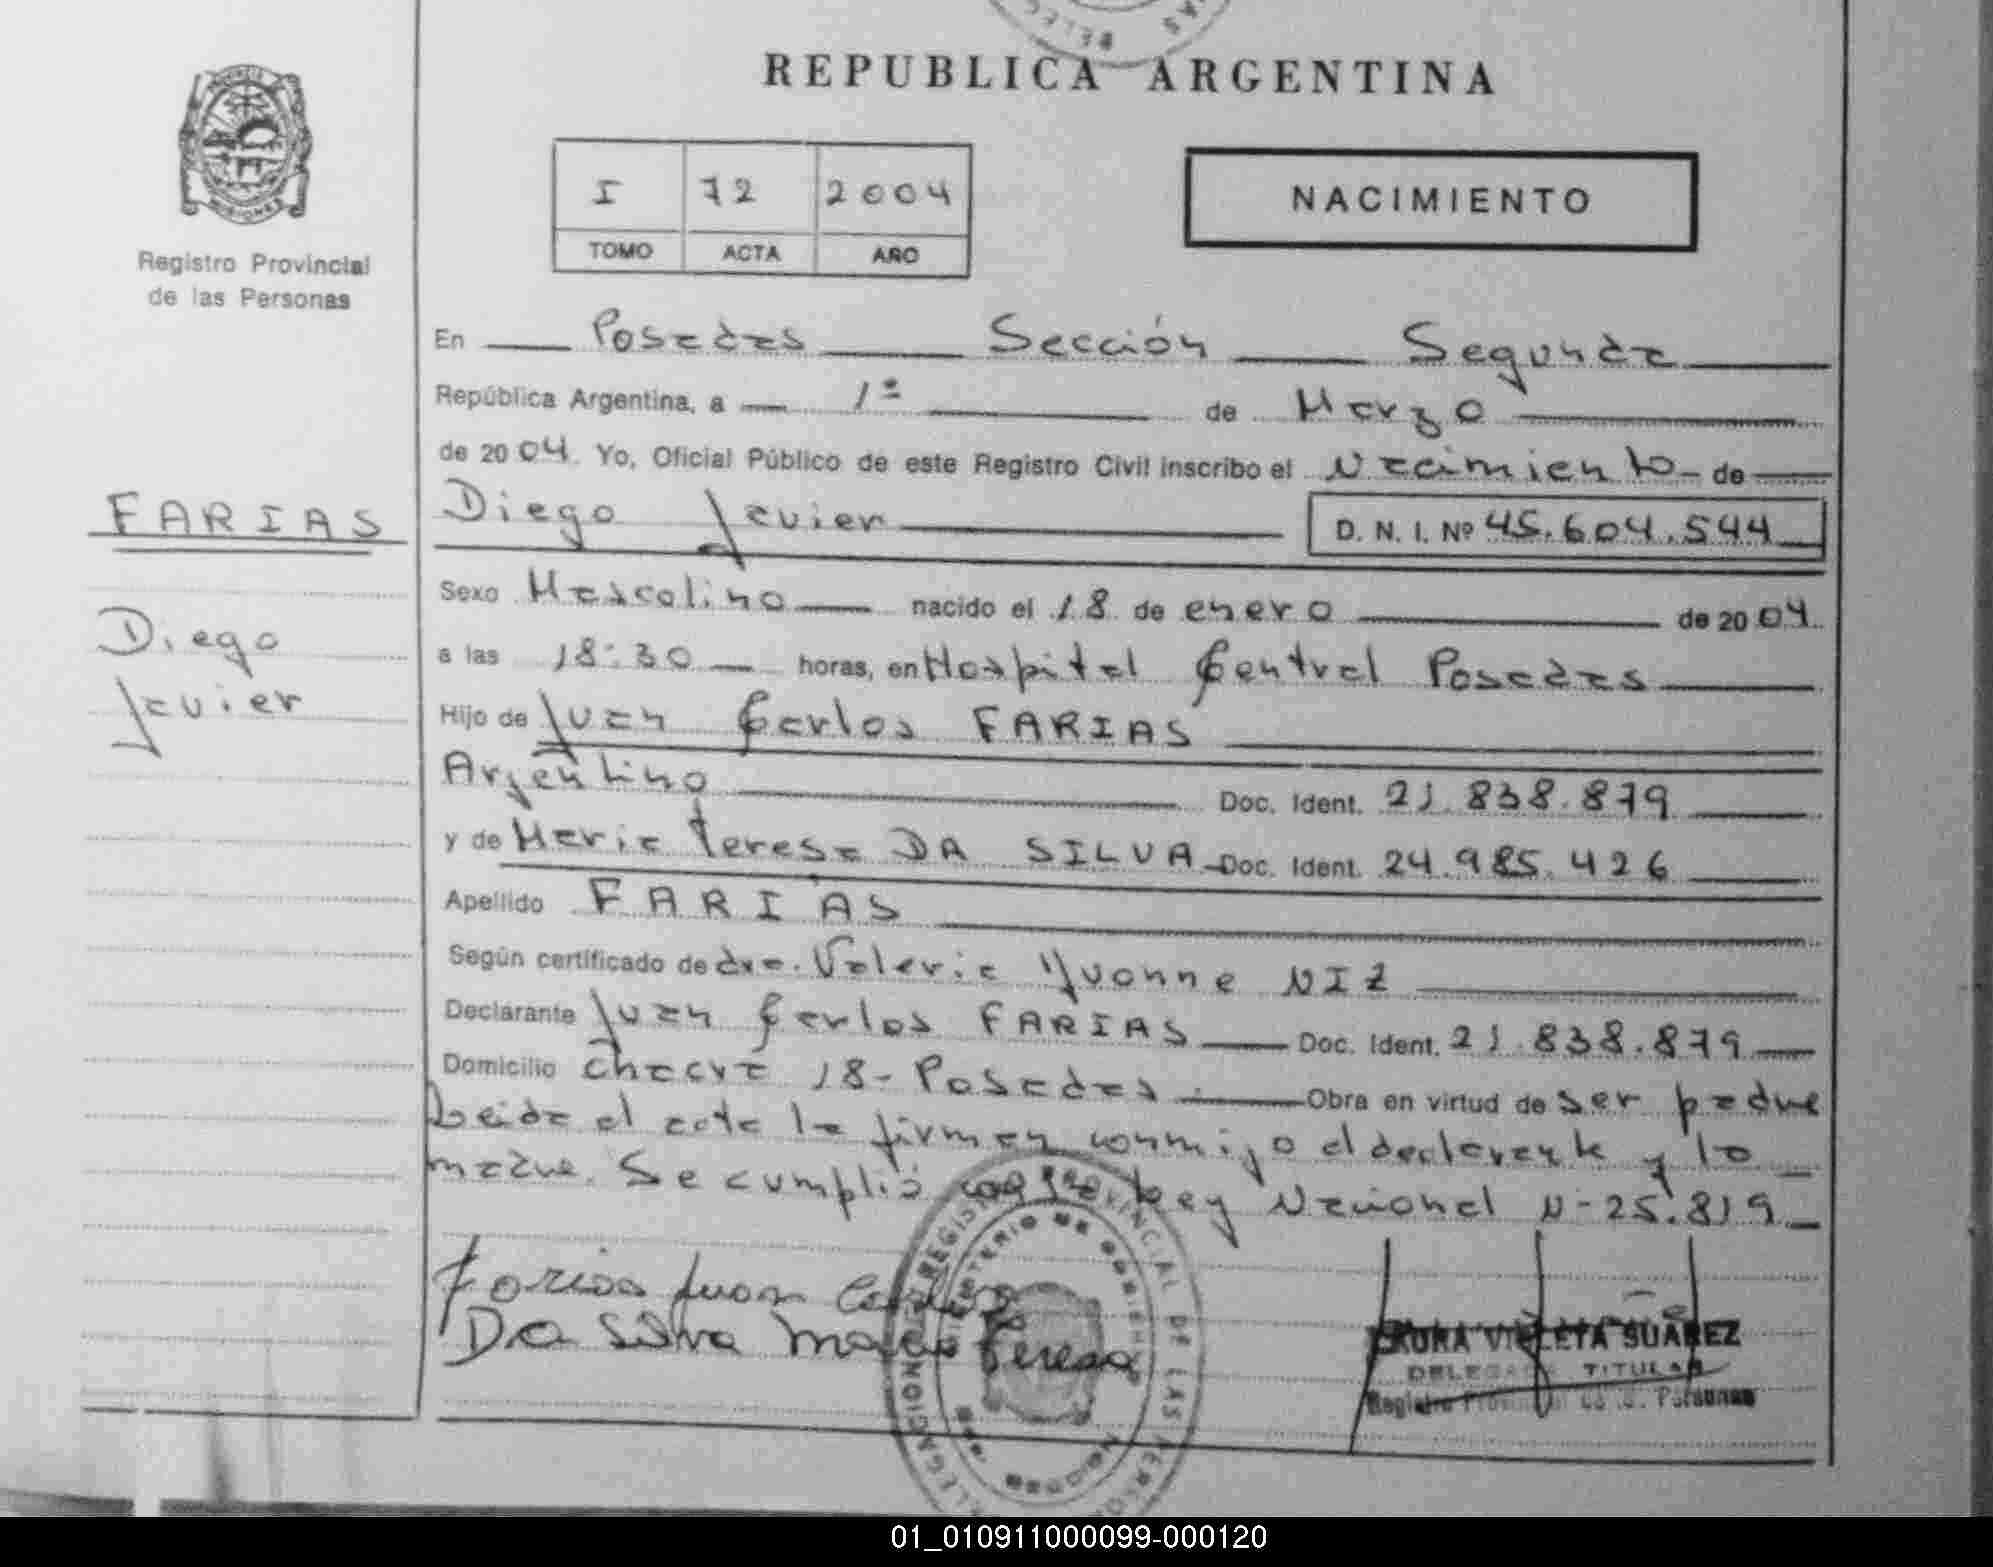 REPUBLICA ARGENTINA
PROVINCIA
MISIONES
Registro Provincial
de las Personas
I 72 2004
TOMO ACTA AÑO
NACIMIENTO
En Posadas Sección Segunda
República Argentina, a 1º de Marzo
de 2004. Yo, Oficial Público de este Registro Civil inscribo el Nacimiento de
FARIAS
Diego Javier D. N. I. Nº 45.604.544
Sexo Masculino nacido el 18 de enero de 2004.
Diego
Javier
a las 18:30 horas, en Hospital Central Posadas
Hijo de Juan Carlos FARIAS
Argentino Doc. Ident. 21.838.879
y de Maria Teresa DA SILVA Doc. Ident. 24.985.426
Apellido FARIAS
Según certificado de dra. Valeria Yvonne NIZ
Declarante Juan Carlos FARIAS Doc. Ident. 21.838.879
Domicilio Chacra 18- Posadas. Obra en virtud de ser padre
Leida el acta la firman conmigo el declarante y la
madre. Se cumplió con la Ley Nacional N-25.819
Farias Juan Carlos
Da Silva Maria Teresa
LAURA VIOLETA SUAREZ
DELEGADA TITULAR
Registro Provincial de las Personas
REGISTRO PROVINCIAL DE LAS PERSONAS
MINISTERIO DE GOBIERNO
MISIONES
01_010911000099-000120